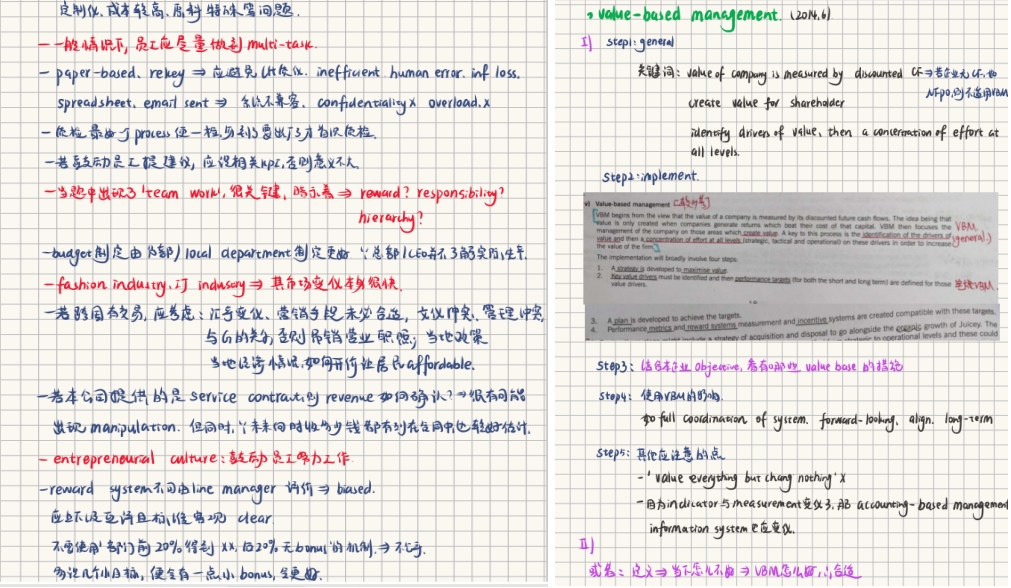 定制化、成本较高、原料特殊等问题.
- 一般情况下, 员工应尽量做到 multi-task.
- paper-based、rekey ⇒ 应避免 inefficient. human error. inf loss.
spreadsheet、email sent ⇒ 系统不兼容. confidentiality× overload.×
- 质检最好 process 便一检, 才为 质检.
- 若鼓励员工提建议, 应设相关KPI, 否则意义不大
- 当题中出现了 'team work', 很关键, 暗示着 ⇒ reward? responsibility?
hierarchy?
- budget制定由 local department 制定更好 ∵总部/CEO并不了解实际
- fashion industry, IT industry ⇒ 其市场变化本身很快.
- 若跨国有交易, 应考虑: 汇率变化、营销手段未必合适, 文化冲突、管理冲突
与G的关系, 否则吊销营业职照; 当地政策
当地经济情况, 如何开价让居民affordable.
- 若本公司提供的是service contract, 则revenue如何确认? ⇒ 很有可能
出现 manipulation. 但同时, ∵未来何时收多少钱都有列在合同中也较好估计.
- entrepreneurial culture: 鼓励员工努力工作
- reward system不可由line manager 评价 ⇒ biased.
应上下级互评且标准客观 clear
不要使用'部门前20%得到××, 后20%无bonus'的机制. ⇒ 不公平.
多设几个小目标, 便会有一点小bonus, 会更好.
, value-based management. (2014.6)
I) step1: general
关键词: value of company is measured by discounted CF ⇒ 若企业无CF, 如
NFPO, 则不适用VBM
create value for shareholder
identify drivers of value, then a concentration of effort at
all levels.
Step2: implement.
v) Value-based management
VBM begins from the view that the value of a company is measured by its discounted future cash flows. The idea being that
value is only created when companies generate returns which beat their cost of that capital. VBM then focuses the
management of the company on those areas which create value. A key to this process is the identification of the drivers of
value and then a concentration of effort at all levels (strategic, tactical and operational) on these drivers in order to increase
the value of the firm.
VBM
(general)
The implementation will broadly involve four steps.
1. A strategy is developed to maximise value.
2. Key value drivers must be identified and then performance targets (for both the short and long term) are defined for those
value drivers.
VBM.
3. A plan is developed to achieve the targets.
4. Performance metrics and reward systems measurement and incentive systems are created compatible with these targets.
might include a strategy of acquisition and disposal to go alongside the organic growth of Juicey. The
Step3: 结合本企业 objective, 看有哪些 value base 的措施
Step4: 使用VBM的好处.
如 full coordination of system. forward-looking, align. long-term
Step5: 其他应注意的点
- 'value everything but chang nothing' ×
- 因为indicator与measurement变化了, 那 accounting-based management
information system也应变化.
II)
或者: 定义 ⇒ 当下怎么不好 ⇒ VBM怎么好, 合适